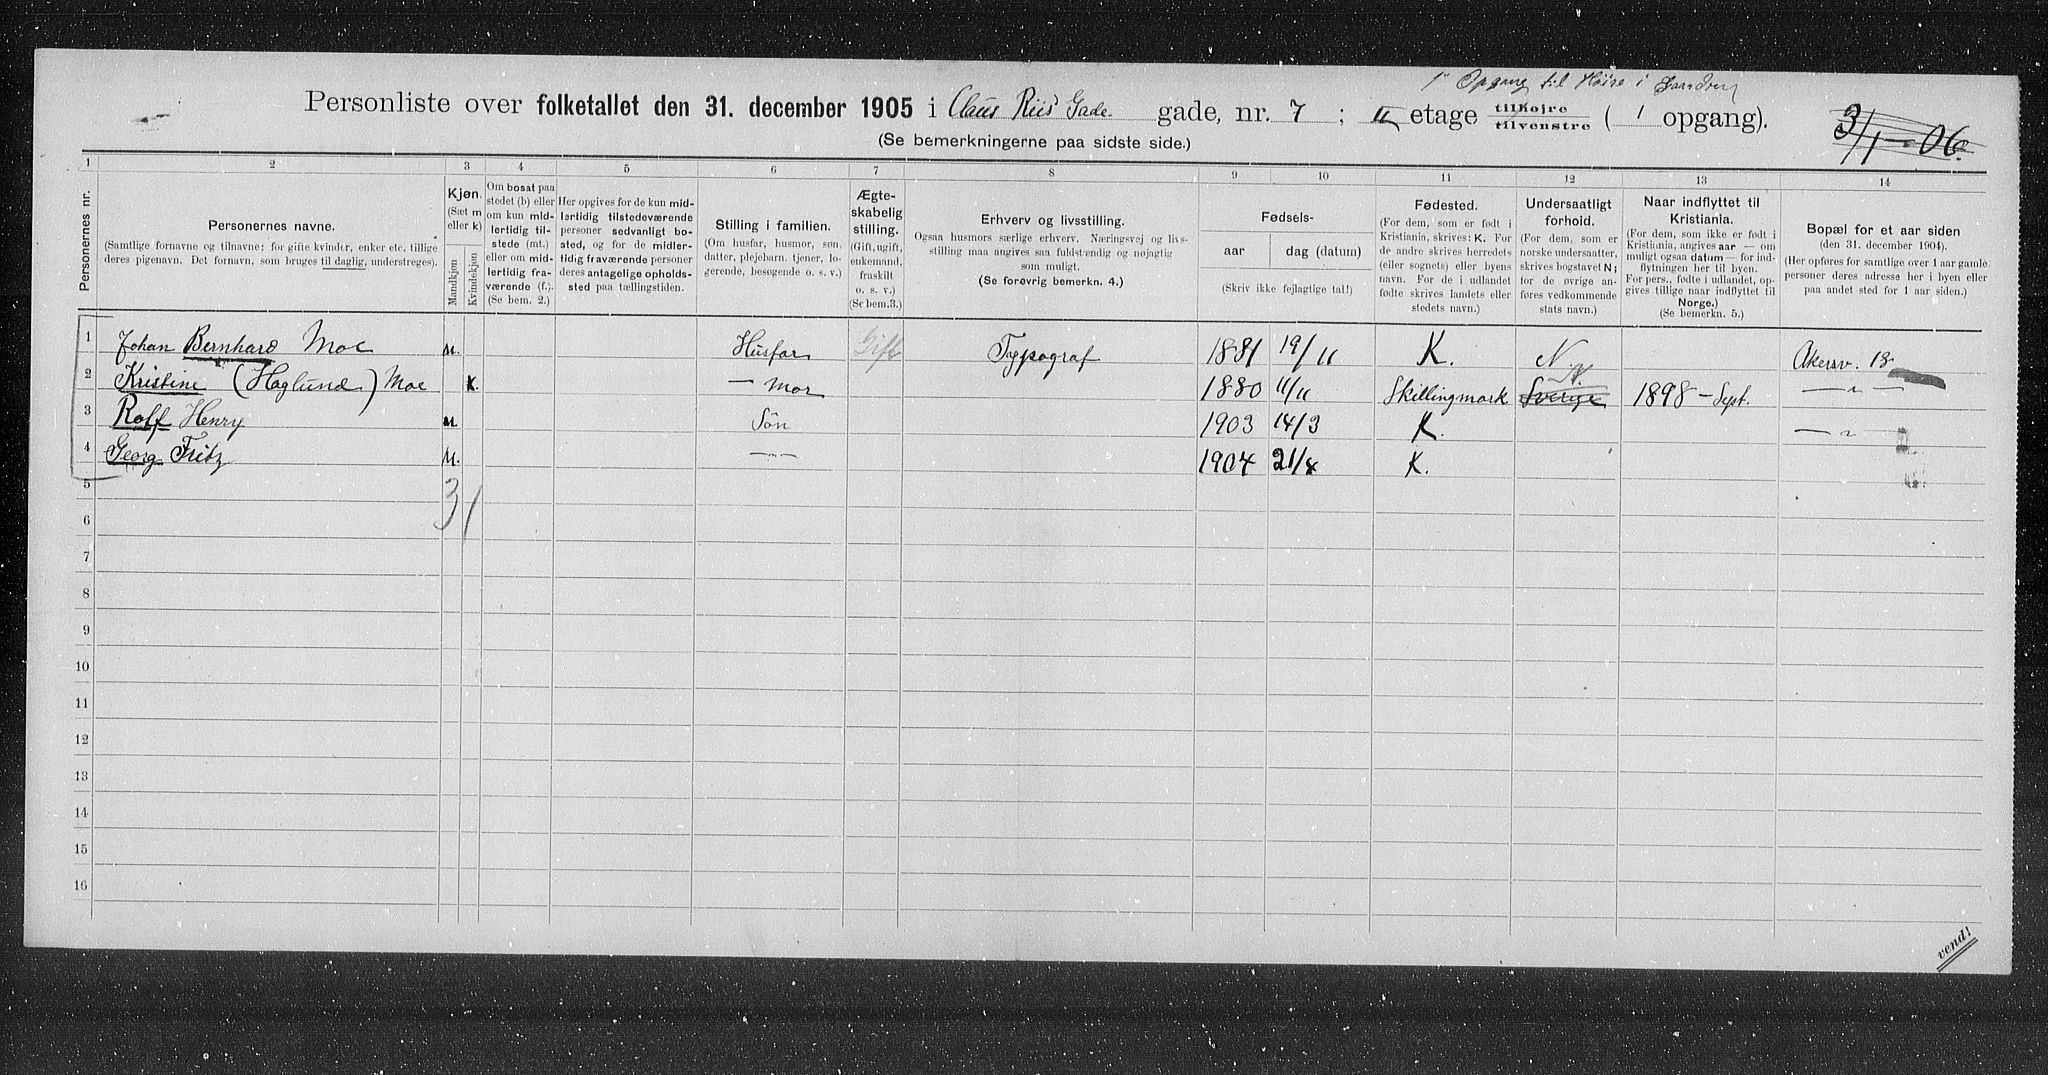 1ste Opgang til Høire i Gaarden
Personliste over folketallet den 31. december 1905 i Claus Riis' Gade. gade, nr. 7 ; II etage tilhøjre tilvenstre ( 1 opgang).
3/1-06.
(Se bemerkningerne paa sidste side.)
1 2 3 4 5 6 7 8 9 10 11 12 13 14
Personernes nr.
Personernes navne.
(Samtlige fornavne og tilnavne; for gifte kvinder, enker etc. tillige
deres pigenavn. Det fornavn, som bruges til daglig, understreges).
Kjøn.
(Sæt m
eller k)
Mandkjøn
Kvindekjøn
Om bosat paa
stedet (b) eller
om kun mid-
lertidig til-
stede (mt.)
eller om mid-
lertidig fra-
værende (f.).
(Se bem. 2.)
Her opgives for de kun mid-
lertidig tilstedeværende
personer sedvanligt bo-
sted, og for de midler-
tidig fraværende personer
deres antagelige opholds-
sted paa tællingstiden.
Stilling i familien.
(Om husfar, husmor, søn,
datter, plejebarn, tjener, lo-
gerende, besøgende o. s. v.)
Ægte-
skabelig
stilling.
(Gift, ugift,
enkemand,
fraskilt
o. s. v.)
(Se bem.3.)
Erhverv og livsstilling.
Ogsaa husmors særlige erhverv. Næringsvej og livs-
stilling maa angives saa fuldstændig og nøjagtig
som muligt.
(Se forøvrig bemerkn. 4.)
Fødsels-
aar dag (datum)
(Skriv ikke fejlagtige tal!)
Fødested.
(For dem, som er født i
Kristiania, skrives: K. For
de andre skrives herredets
(eller sognets) eller byens
navn. For de i udlandet
fødte skrives landets eller
stedets navn.)
Undersaatligt
forhold.
(For dem, som er
norske undersaatter,
skrives bogstavet N;
for de øvrige an-
føres vedkommende
stats navn.)
Naar indflyttet til
Kristiania.
(For dem, som ikke er født i
Kristiania, angives aar — om
muligt ogsaa datum — for ind-
flytningen her til byen.
For pers., fødte i udlandet, op-
gives tillige naar indflyttet til
Norge.)
(Se bemerkn. 5.)
Bopæl for et aar siden
(den 31. december 1904).
(Her opføres for samtlige over 1 aar gamle
personer deres adresse her i byen eller
paa andet sted for 1 aar siden.)
1 Johan Bernhard Moe M. Husfar Gift Typograf 1881 19/11 K. N. Akersv. 18
2 Kristine (Haglund) Moe K. — mor 1880 11/11 Skillingmark Sverige N. 1898 - Sept. — " —
3 Rolf Henry M. Søn 1903 14/3 K. — " —
4 Georg Fritz M. — " — 1904 21/8 K.
5 3 1
6
7
8
9
10
11
12
13
14
15
16
vend!